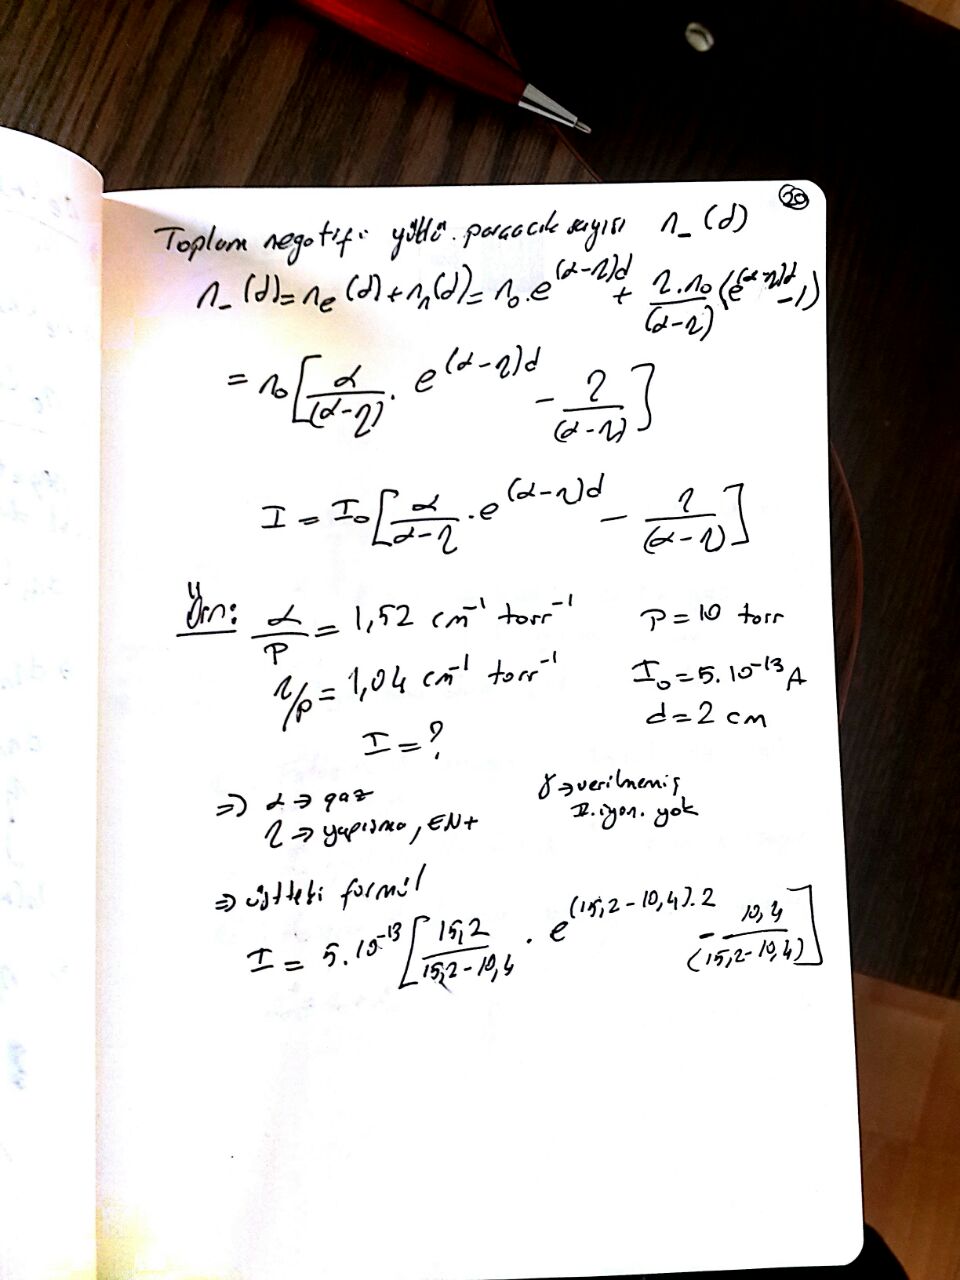 20
Toplam negatif yüklü parçacık sayısı n_(d)
n_(d) = nₑ(d) + nₙ(d) = n₀.e^(α-η)d + η.n₀/(α-η) (e^(α-η)d - 1)
= n₀[α/(α-η) . e^(α-η)d - η/(α-η)]
I = I₀[α/α-η . e^(α-η)d - η/(α-η)]
Örn: α/P = 1,52 cm⁻¹ torr⁻¹ P = 10 torr
η/p = 1,04 cm⁻¹ torr⁻¹ I₀ = 5.10⁻¹³ A
d = 2 cm
I = ?
⇒) α → gaz γ → verilmemiş
η → yapışma, EN+ II. iyon. yok
⇒ üstteki formül
I = 5.10⁻¹³ [15,2/15,2-10,4 . e^(15,2-10,4).2 - 10,4/(15,2-10,4)]